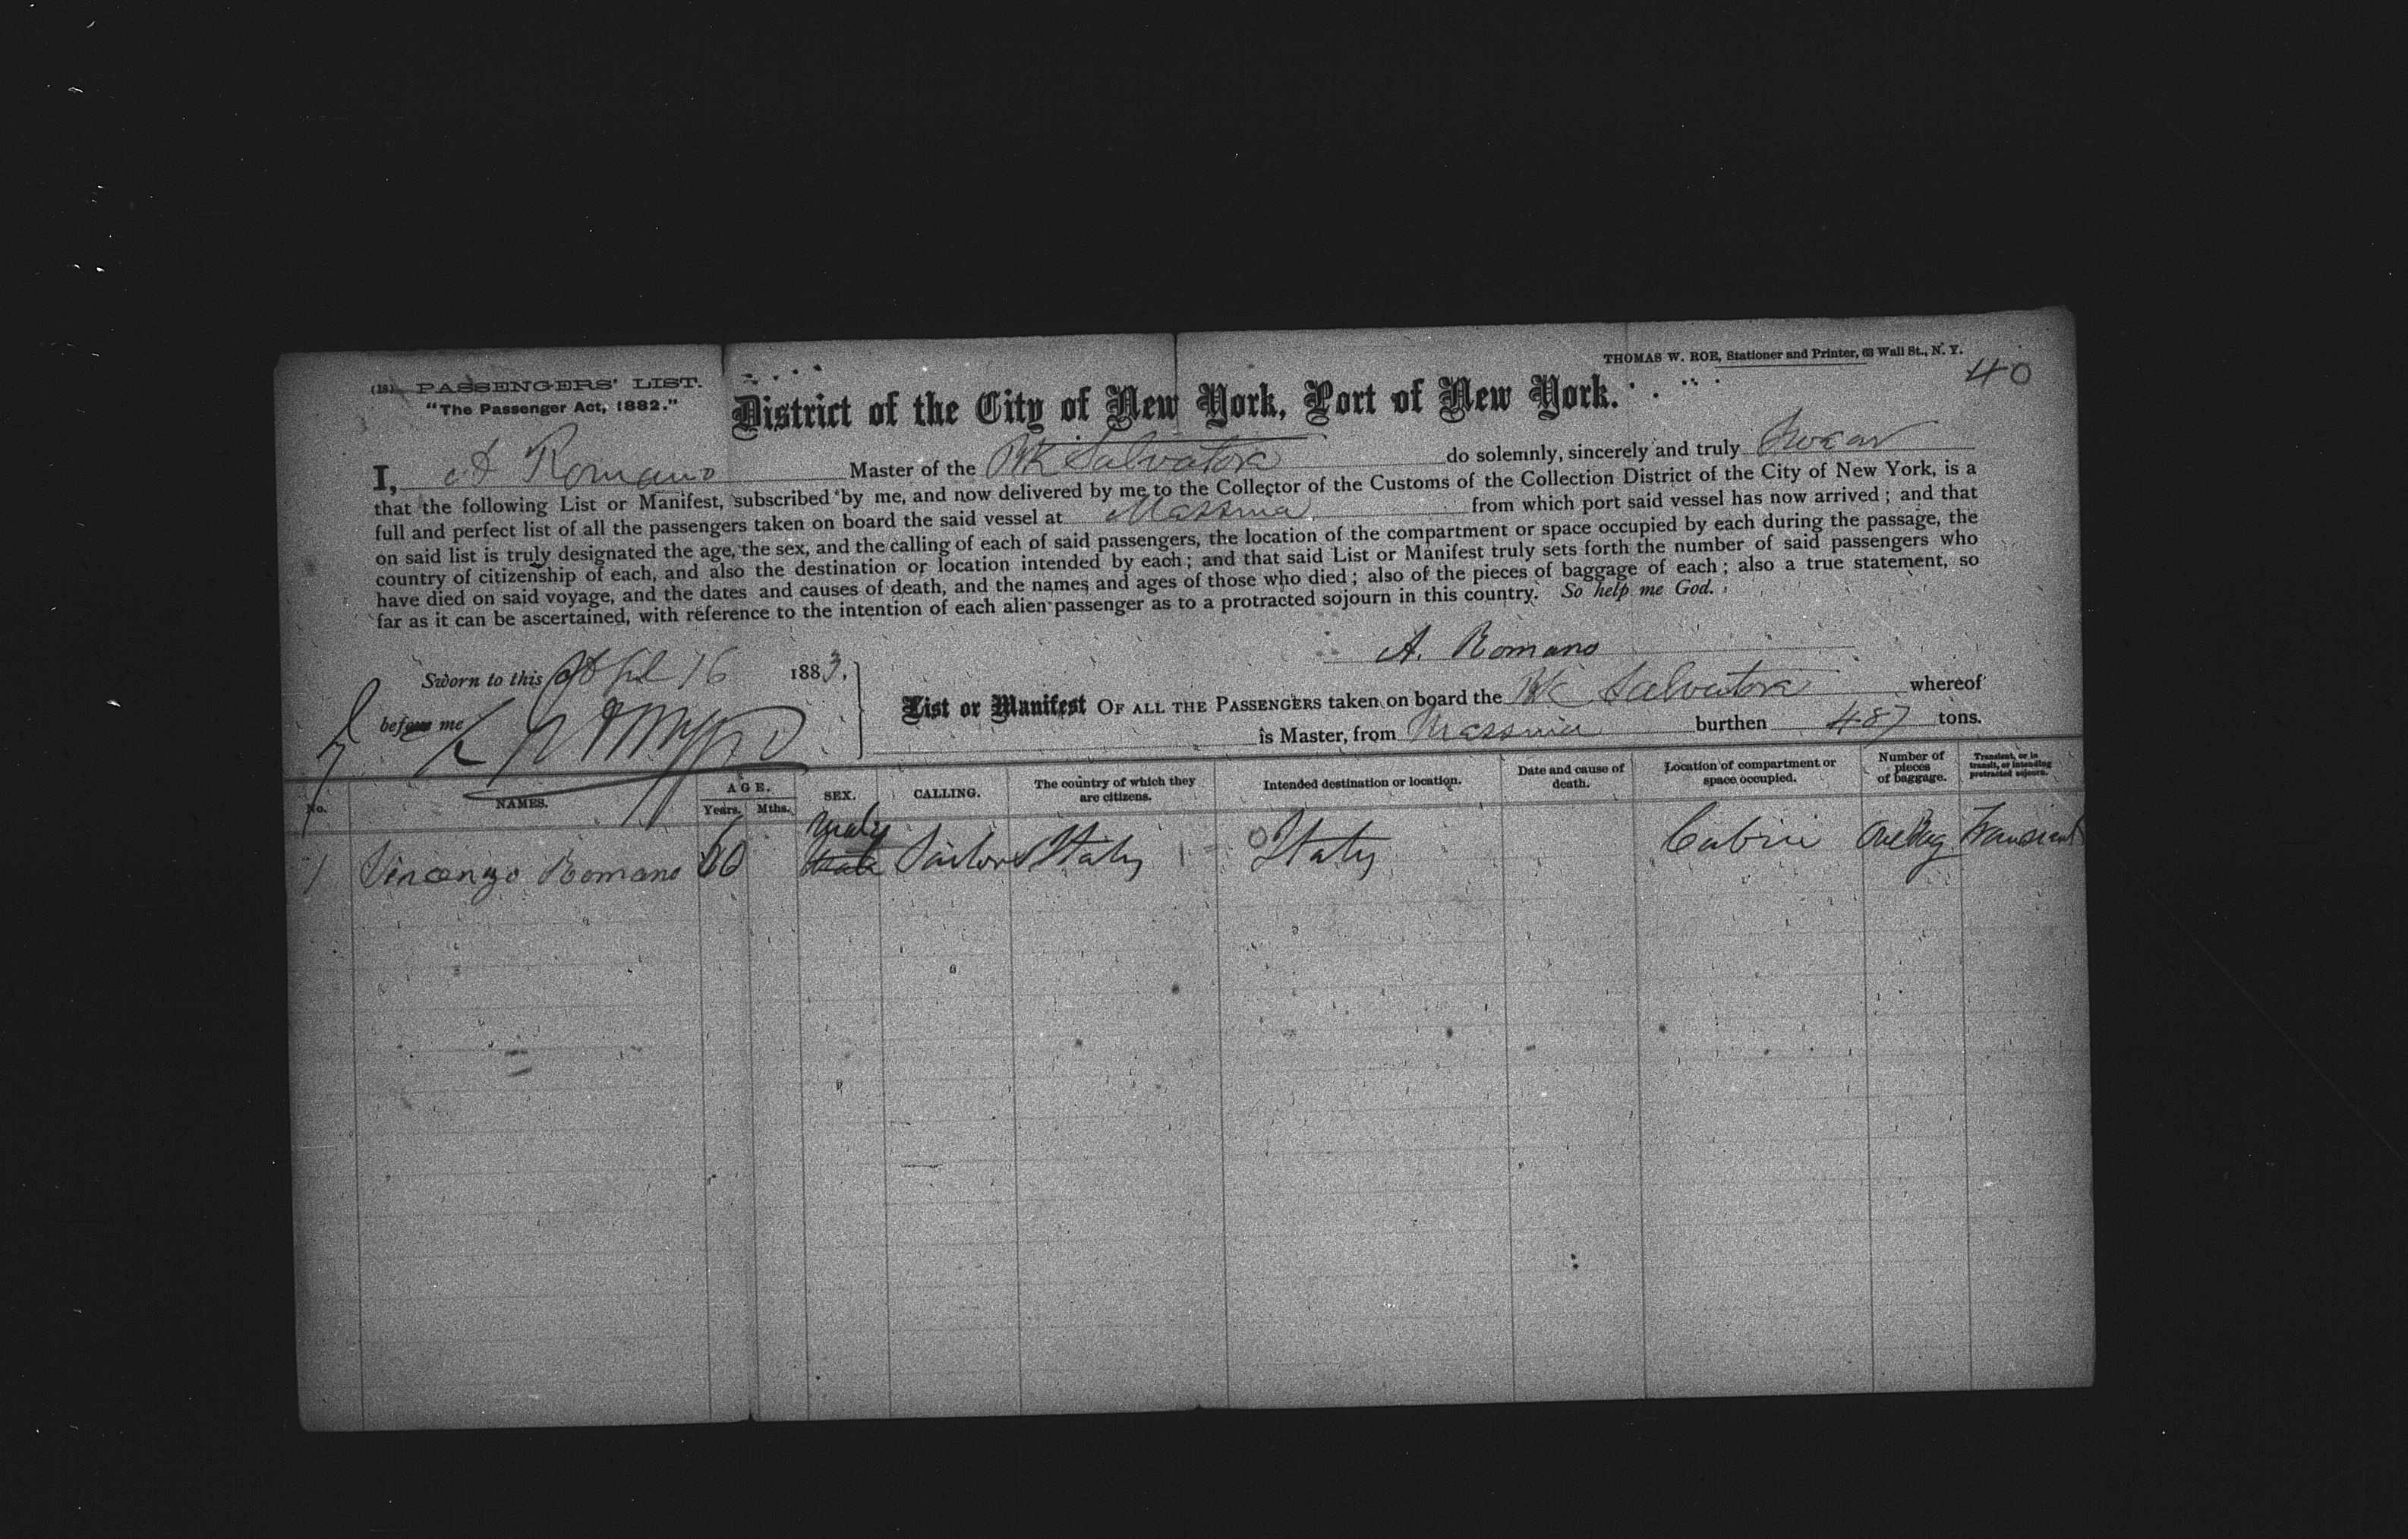 THOMAS W. ROE, Stationer and Printer, 63 Wall St., N. Y.
40
(18) PASSENGERS' LIST.
"The Passenger Act, 1882."
District of the City of New York, Port of New York.
I, A Romano Master of the Bk Salvatore do solemnly, sincerely and truly Swear
that the following List or Manifest, subscribed by me, and now delivered by me to the Collector of the Customs of the Collection District of the City of New York, is a
full and perfect list of all the passengers taken on board the said vessel at Massina from which port said vessel has now arrived; and that
on said list is truly designated the age, the sex, and the calling of each of said passengers, the location of the compartment or space occupied by each during the passage, the
country of citizenship of each, and also the destination or location intended by each; and that said List or Manifest truly sets forth the number of said passengers who
have died on said voyage, and the dates and causes of death, and the names and ages of those who died; also of the pieces of baggage of each; also a true statement, so
far as it can be ascertained, with reference to the intention of each alien passenger as to a protracted sojourn in this country. So help me God.
A. Romano
Sworn to this April 16 1883.
before me
List or Manifest OF ALL THE PASSENGERS taken on board the Bk Salvatore whereof
is Master, from Massina burthen 487 tons.
No. NAMES. AGE. Years. Mths. SEX. CALLING. The country of which they are citizens. Intended destination or location. Date and cause of death. Location of compartment or space occupied. Number of pieces of baggage. Transient, or in transit, or intending protracted sojourn.
Male
1 Vincenzo Romano 60 Sailor Italy Italy Cabin One Bag Transient